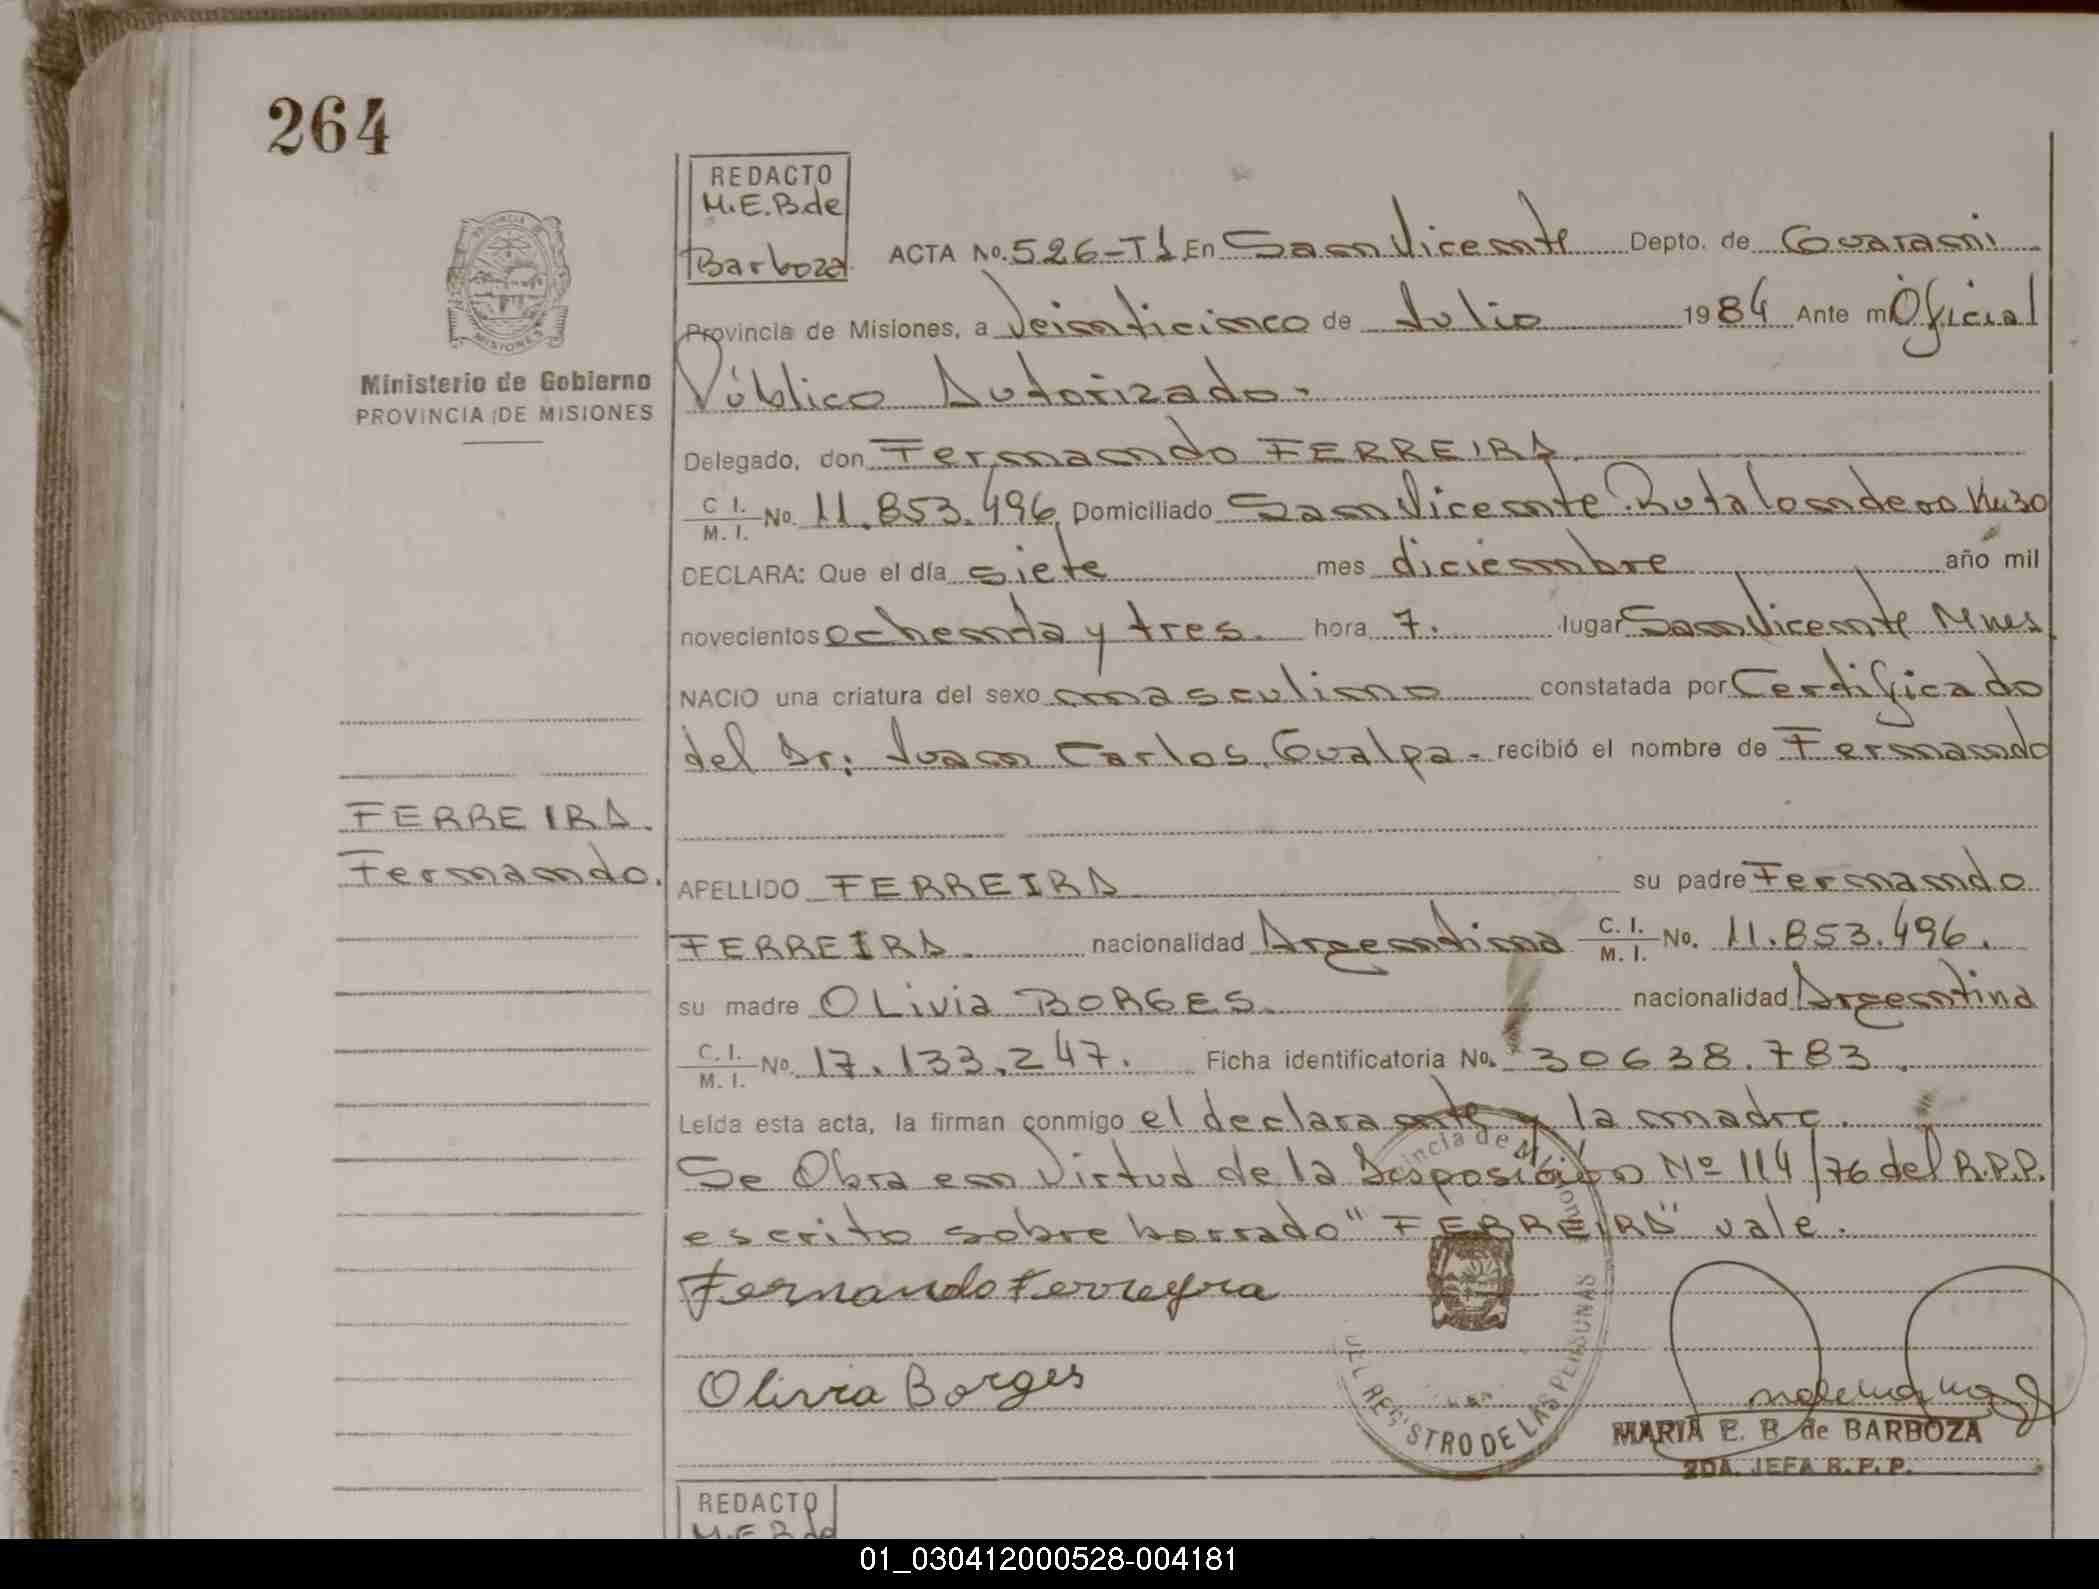 264
REDACTO
M.E.B.de
Barboza
ACTA No. 526-T1 En San Vicente Depto. de Guarani
PROVINCIA DE
MISIONES
Ministerio de Gobierno
PROVINCIA DE MISIONES
Provincia de Misiones, a Veinticinco de Julio 1984 Ante mi Oficial
Público Autorizado.
Delegado, don Fernando FERREIRA.
C. I. / M. I. No. 11.853.496, Domiciliado San Vicente Ruta Londero Km30
DECLARA: Que el día siete mes diciembre año mil
novecientos ochenta y tres. hora 7. lugar San Vicente Mnes.
NACIO una criatura del sexo masculino constatada por Certificado
del Dr: Juan Carlos Gualpa - recibió el nombre de Fernando
FERREIRA.
Fernando.
APELLIDO FERREIRA su padre Fernando
FERREIRA. nacionalidad Argentina C. I. / M. I. No. 11.853.496.
su madre OLivia BORGES. nacionalidad Argentina
C. I. / M. I. No. 17.133.247. Ficha identificatoria No. 30638.783.
Leída esta acta, la firman conmigo el declarante y la madre.
Se Obra en Virtud de la Disposición Nº 114/76 del R.P.P.
escrito sobre borrado "FERREIRA" vale.
Fernando Ferreyra
Olivia Borges
Provincia de Misiones
DEL REGISTRO DE LAS PERSONAS
MARIA E. B. de BARBOZA
2DA. JEFA R. P. P.
REDACTO
M.E.B.de
01_030412000528-004181